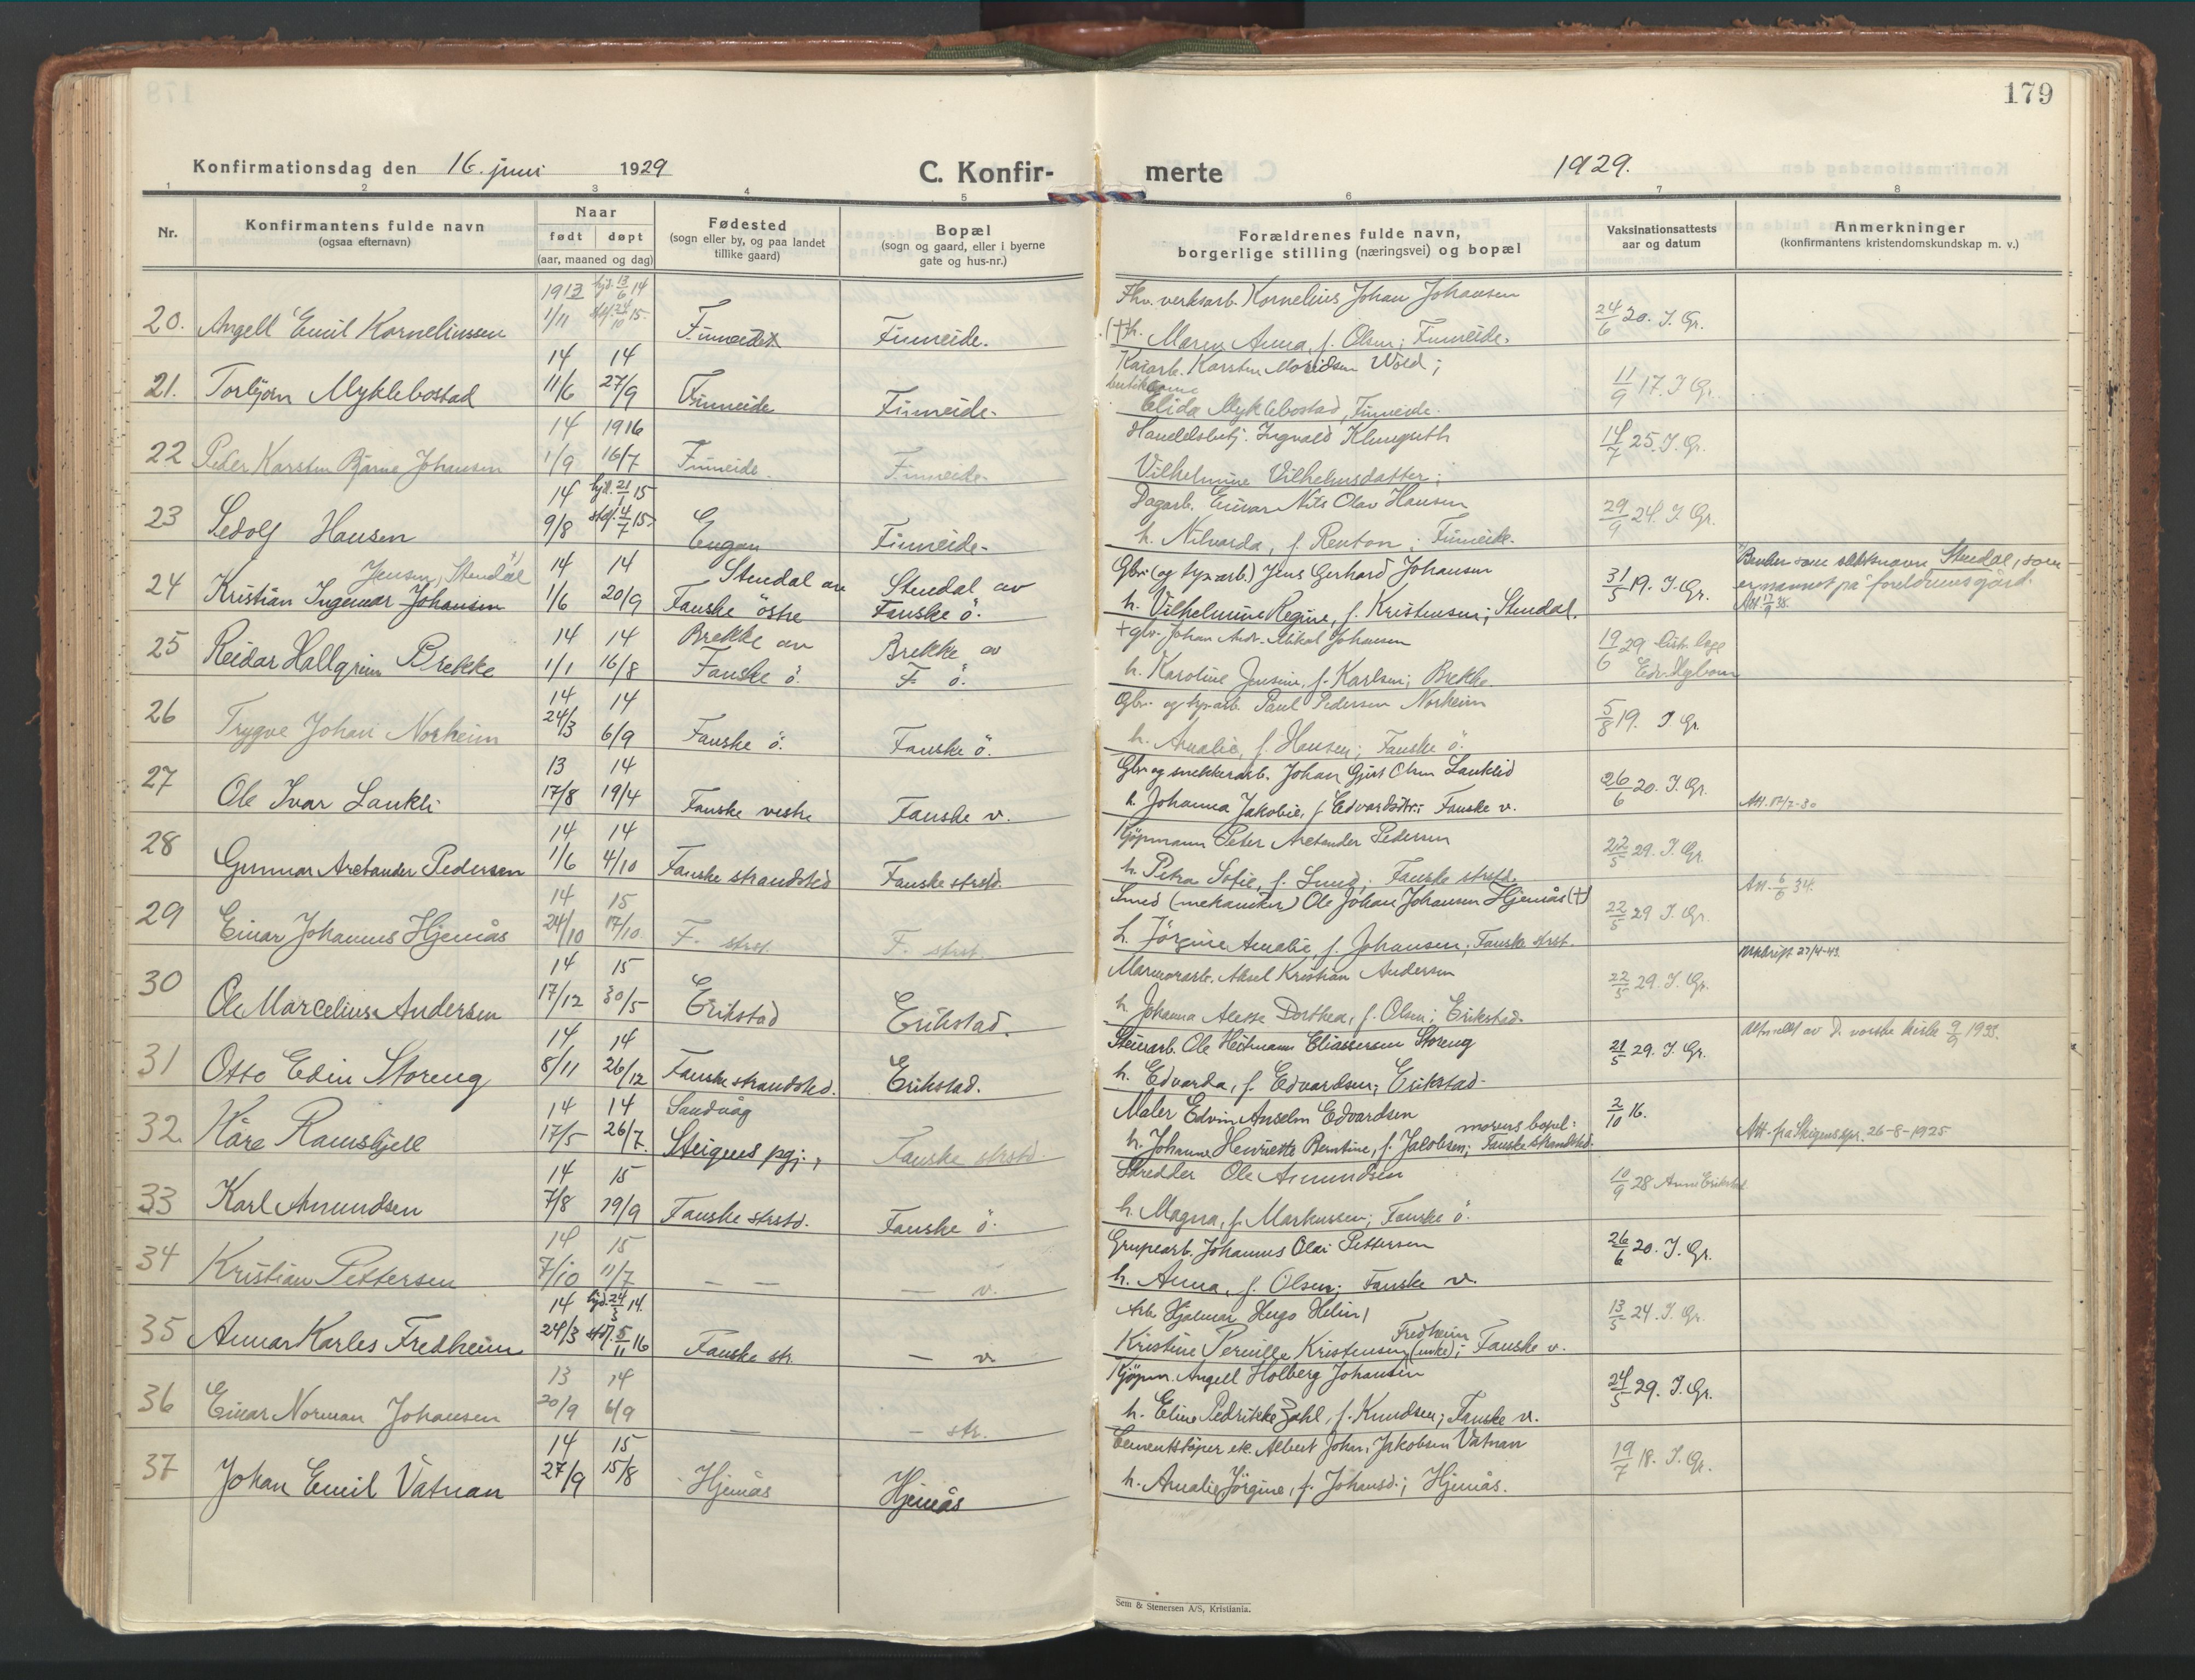 179
Konfirmationsdag den 16. juni 1929
C. Konfir-
merte
1929.
1 2 3 4 5 6 7 8
Nr.
Konfirmantens fulde navn
(ogsaa efternavn)
Naar
født døpt
(aar, maaned og dag)
Fødested
(sogn eller by, og paa landet
tillike gaard)
Bopæl
(sogn og gaard, eller i byerne
gate og hus-nr.)
Forældrenes fulde navn,
borgerlige stilling (næringsvei) og bopæl
Vaksinationsattests
aar og datum
Anmerkninger
(konfirmantens kristendomskundskap m. v.)
1913 hjd. 13/6 14 Fhv. verksarb. Kornelius Johan Johansen
20. Angell Emil Korneliussen 1/11 15. Finneidet Finneide. (†) h. Maren Anna, f. Olsen; Finneide. 24/6 20. J. Gr.
14 14 Kaiarb. Karsten Wold;
21. Torbjørn Myklebostad 11/6 27/9 Finneide Finneide. Elida Myklebostad, Finneide. 11/9 17. J. Gr.
14 1916 Handelsbetj. Ingvald Klungseth
22 Peder Karsten Bjarne Johansen 1/9 16/7 Finneide. Finneide. Vilhelmine Vilhelmsdatter; 14/7 25. J. Gr.
14 hjd. 21/1 15 Dagarb. Einar Nils Olav Hansen
23 Sedolf Hansen 9/8 stdf. 4/7 15 Engan Finneide. h. Nilvarda, f. Renton; Finneide. 29/9 24. J. Gr.
Jensen, Stendal 14 14 Stendal av Stendal av Gbr. (og Jens Gerhard Johansen Bruker som slektsnavn Stendal, som
24 Kristian Ingemar Johansen 1/6 20/9 Fauske östre Fauske ö. h. Vilhelmine Regine, f. Kristensen; Stendal. 31/5 19. J. Gr. er navnet på foreldrenes gård.
14 14 Brekke av Brekke av † gbr. Johan Andr. Mikal Johansen
25 Reidar Hallgrim Brekke 1/1 16/8 Fauske ö. F ö. h. Karoline Jensine, f. Karlsen; Brekke. 19/6 29
14 14 Gbr. og Paul Pedersen Norheim
26 Trygve Johan Norheim 24/3 6/9 Fauske ö. Fauske ö. h. Amalie, f. Hansen; Fauske ö. 5/8 19. J Gr.
13 14 Gbr. og snekkerarb. Johan Gjert Olsen Lauklid
27 Ole Ivar Laukli 17/8 19/4 Fauske vestre Fauske v. h. Johanna Jakobie, f. Edvardsdtr; Fauske v. 26/6 20. J. Gr. Att. 17/2-30
14 14 Kjöpmann Peter Aretander Pedersen
28 Gunnar Aretander Pedersen 1/6 4/10 Fauske strandsted Fauske strstd. h. Petra Sofie, f. Lund; Fauske strstd. 22/5 29. J. Gr.
14 15 Smed (mekaniker) Ole Johan Johansen Hjemås (†) Att. 6/6 34.
29 Einar Johannes Hjemås 24/10 17/10 F. strst. F. strst. h. Jörgine Amalie, f. Johansen; Fauske strst. 22/5 29 J. Gr.
14 15 Marmorarb. Aksel Kristian Andersen Utskrift 27/4-43.
30 Ole Marcelius Andersen 17/12 30/5 Erikstad Erikstad. h. Johanna Dorthea, f. Olsen; Erikstad. 22/5 29. J. Gr.
14 14 Steinarb. Ole Heitmann Eliassersen Storeng Utmeldt av d. norske kirke 9/9 1938.
31 Otto Edin Storeng 8/11 26/12 Fauske strandsted. Erikstad. h. Edvarda, f. Edvardsen; Erikstad. 21/5 29. J. Gr.
14 14 Sandvåg Maler Edvin Anselm Edvardsen morens bopel:
32. Kåre Ramsfjell 17/5 26/7. Steigens pgj., Fauske strstd. h. Johanne Henriette Berntine, f. Jakobsen; Fauske strandsted. 2/10 16. Att. fra Steigens spr. 26-8-1925
14 15 Skredder Ole Amundsen
33 Karl Amundsen 7/8 19/9 Fauske strstd. Fauske ö. h. Magna, f. Markussen; Fauske ö. 10/9 28
14 15 Grupearb. Johannes Olai Pettersen
34 Kristian Pettersen 7/10 11/7 — — — v. h. Anna, f. Olsen; Fauske v. 26/6 20. J. Gr.
14 hjd. 24/3 14. Arb. Hjalmar Hugo Helin,
35 Annar Karles Fredheim 24/3 stdf. 5/11 16 Fauske str. — v Kristine Pernille Kristensen Fredheim (enke); Fauske v. 13/5 24. J. Gr.
13 14 Kjöpm. Angell Holberg Johansen
36 Einar Norman Johansen 20/9 6/9 — — str. h. Eline Fredrikke Zahl, f. Knudsen; Fauske v. 24/5 29. J. Gr.
14 15 Cementstöper Albert Johan Jakobsen Vatnan
37 Johan Emil Vatnan 27/9 15/8 Hjemås Hjemås h. Amalie Jörgine, f. Johansd.; Hjemås. 19/7 18. J. Gr.
Sem & Stenersen A/S, Kristiania.